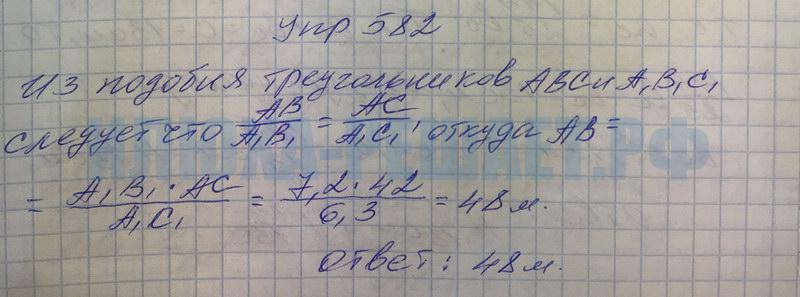 Упр 582
Из подобия треугольников ABC и A₁B₁C₁
следует что AB/A₁B₁ = AC/A₁C₁, откуда AB =
= A₁B₁·AC/A₁C₁ = 7,2·42/6,3 = 48 м.
ответ: 48 м.